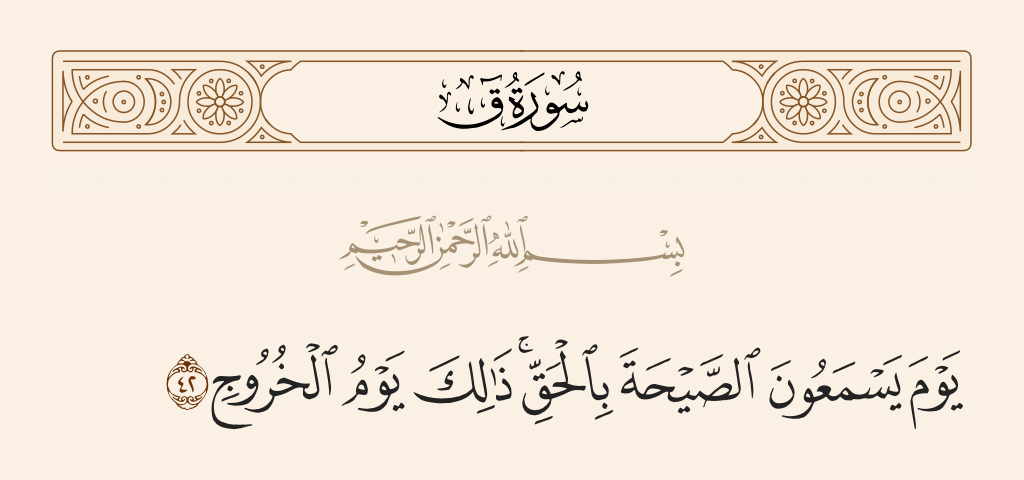 سُورَةُ قٓ
بِسْمِ ٱللَّهِ ٱلرَّحْمَٰنِ ٱلرَّحِيمِ
يَوْمَ يَسْمَعُونَ ٱلصَّيْحَةَ بِٱلْحَقِّ ۚ ذَٰلِكَ يَوْمُ ٱلْخُرُوجِ ٤٢